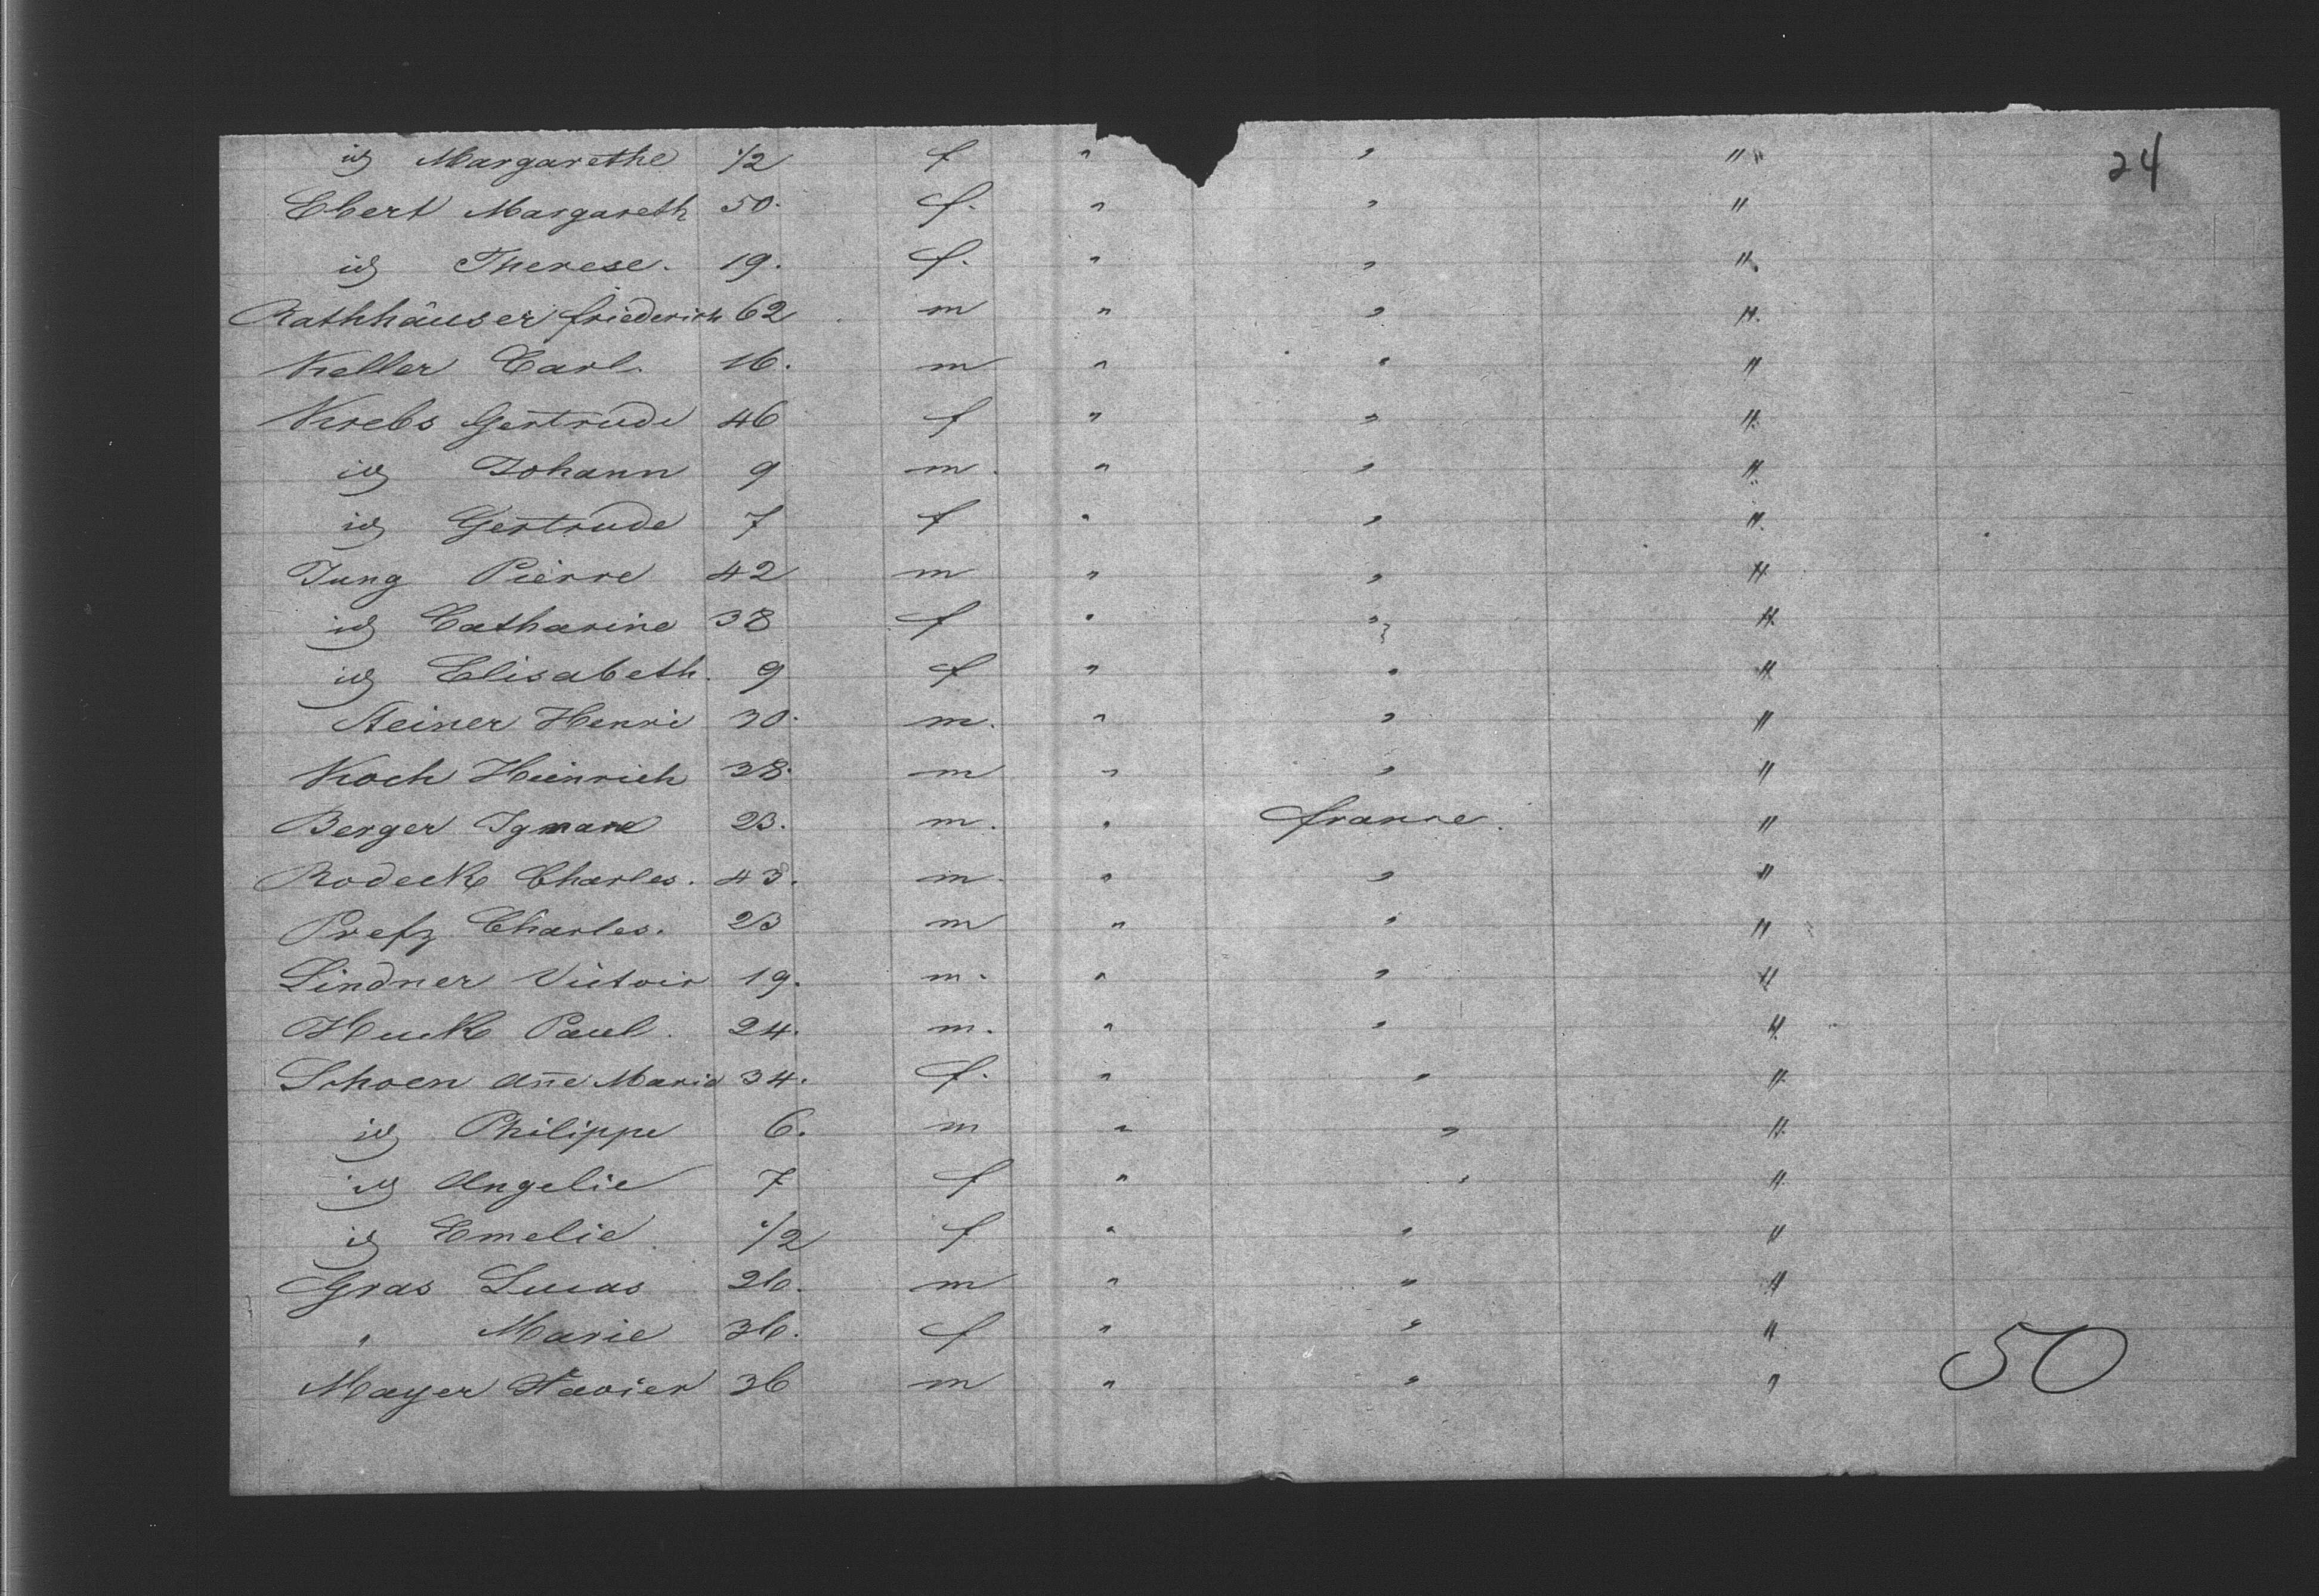 24
id Margarethe 1/2 f " " "
Ebert Margareth 50. f. " " "
id Therese. 19. f. " " "
Rathhâuser friederich 62 m " " "
Keller Carl. 16. m " " "
Krebs Gertrude 46 f " " "
id Johann 9 m. " " "
id Gertrude 7 f " " "
Jung Pierre 42 m " " "
id Catharine 38 f " " "
id Elisabeth. 9 f " " "
Steiner Henri 30. m. " " "
Koch Heinrich 38. m " " "
Berger 23. m. " france. "
Rodeck Charles. 43. m. " " "
Charles. 23 m " " "
Lindner Victoir 19. m. " " "
Huck Paul. 24. m. " " "
Schoen añe Maria 34. f. " " "
id Philippe 6. m " " "
id Angelie 7 f " " "
id Emelie 1/2 f " " "
Gras Lucas 26. m " " "
" Marie 36. f " " "
Mayer Xavier 36 m " " "
50